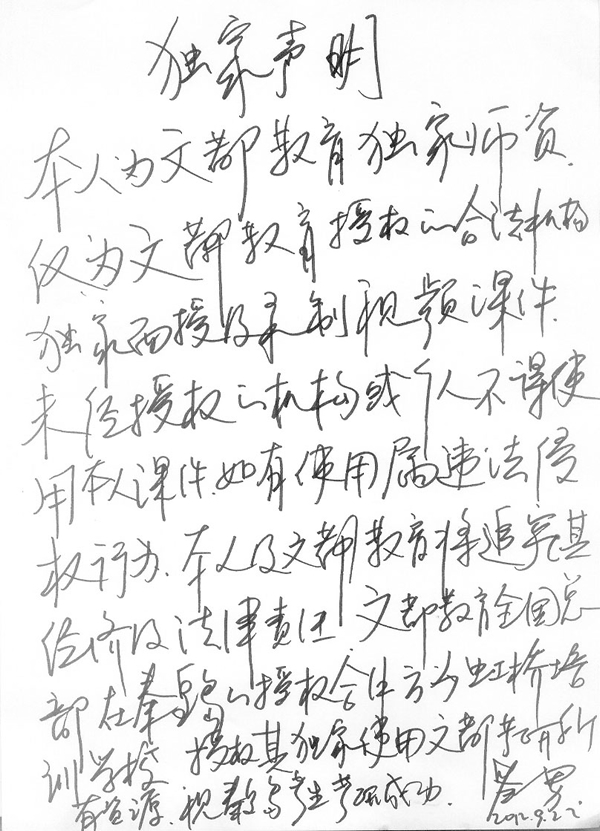 独家声明
本人为文都教育独家师资.
仅为文都教育授权的合法机构
独家面授及录制视频课件.
未经授权的机构或个人不得使
用本人课件.如有使用属违法侵
权行为.本人及文都教育将追究其
经济及法律责任.文都教育全国总
部在秦皇岛的授权合作方为虹桥培
训学校 授权其独家使用文都教育所
有资源.祝秦皇岛考生考研成功.
2012.9.22